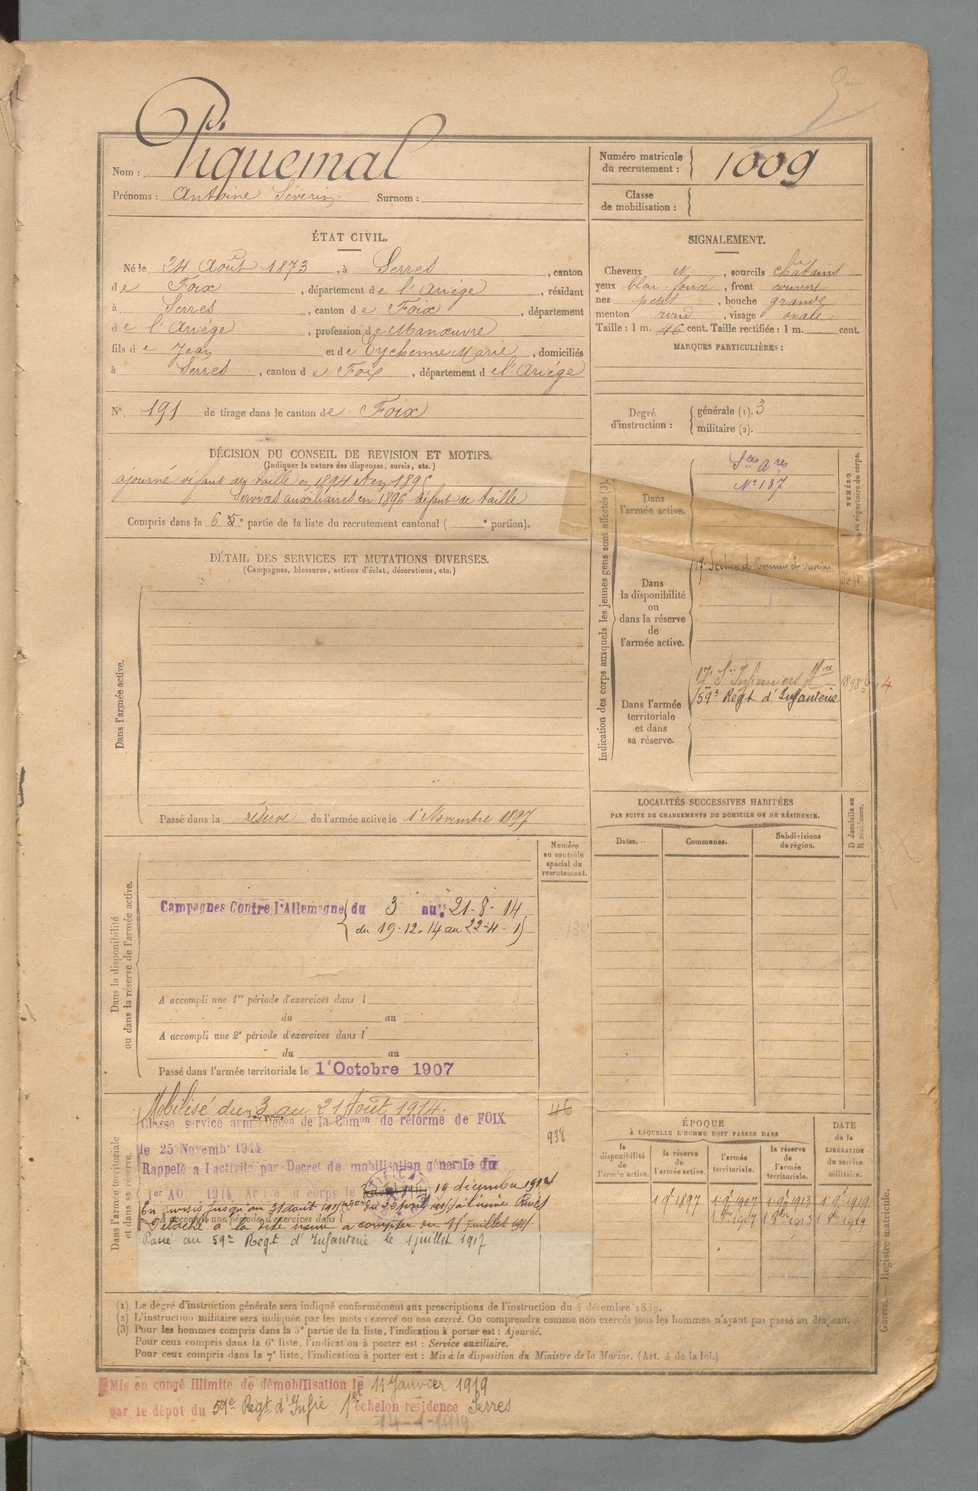 Nom : Piquemal
Prénoms : Antoine Séverin Surnom :
Numéro matricule du recrutement : 1009
Classe de mobilisation :
ÉTAT CIVIL.
Né le 24 Août 1873, à Serres, canton
de Foix, département de l'Ariège, résidant
à Serres, canton de Foix, département
de l'Ariège, profession de Manœuvre
fils de Jean et de Eychenne Marie, domiciliés
à Serres, canton de Foix, département de l'Ariège
N° 191 de tirage dans le canton de Foix
SIGNALEMENT.
Cheveux et, sourcils chatains
yeux, front couvert
nez petit, bouche grande
menton rond, visage ovale
Taille : 1 m. 46 cent. Taille rectifiée : 1 m. cent.
MARQUES PARTICULIÈRES :
Degré d'instruction : générale (1). 3
militaire (2).
DÉCISION DU CONSEIL DE REVISION ET MOTIFS.
(Indiquer la nature des dispenses, sursis, etc.)
ajourné défaut de taille en 1894 et en 1895
Services auxiliaires en 1896 défaut de taille
Compris dans la 6e partie de la liste du recrutement cantonal ( e portion).
DÉTAIL DES SERVICES ET MUTATIONS DIVERSES.
(Campagnes, blessures, actions d'éclat, décorations, etc.)
Dans l'armée active.
Passé dans la réserve de l'armée active le 1er Novembre 1897
Indication des corps auxquels les jeunes gens sont affectés (3).
NUMÉRO au répertoire du corps.
Dans l'armée active.
Sces Ares
N° 137
Dans la disponibilité ou dans la réserve de l'armée active.
17e Section d
Dans l'armée territoriale et dans sa réserve.
17e Son Infirmiers Mres
59e Régt d'Infanterie
LOCALITÉS SUCCESSIVES HABITÉES
PAR SUITE DE CHANGEMENTS DE DOMICILE OU DE RÉSIDENCE.
Dates. Communes. Subdivisions de région. D domicile ou R résidence.
Numéro au contrôle spécial du recrutement.
Dans la disponibilité ou dans la réserve de l'armée active.
Campagnes Contre l'Allemagne du 3 au 21-8-14
du 19-12-14 au 22-4-15
A accompli une 1re période d'exercices dans l
du au
A accompli une 2e période d'exercices dans l
du au
Passé dans l'armée territoriale le 1er Octobre 1907
Dans l'armée territoriale et dans sa réserve.
Mobilisé du 3 au 21 Août 1914.
46
938
Classe service armé Décon de la Comon de réforme de FOIX
le 25 Novembre 1914
Rappelé à l'activité par Decret de mobilisation générale du
1er AO 1914 Arrivé au corps le 19 décembre 1914
En sursis jusqu'au 31 août
A accompli une période d'exercices dans l
Détaché à la dite usine à compter du 1er juillet
Passé au 59e Régt d'Infanterie le 1 juillet 1917
ÉPOQUE
À LAQUELLE L'HOMME DOIT PASSER DANS
DATE de la LIBÉRATION du service militaire.
la disponibilité de l'armée active. la réserve de l'armée active. l'armée territoriale. la réserve de l'armée territoriale.
1 9e 1897 1 9e 1907 1 9e 1913 1 9e 1919
1 8bre 1907 1 8bre 1913 1 8bre 1919
(1) Le degré d'instruction générale sera indiqué conformément aux prescriptions de l'instruction du 4 décembre 1889.
(2) L'instruction militaire sera indiquée par les mots : exercé ou non exercé. On comprendra comme non exercés tous les hommes n'ayant pas passé au drapeau.
(3) Pour les hommes compris dans la 5e partie de la liste, l'indication à porter est : Ajourné.
Pour ceux compris dans la 6e liste, l'indication à porter est : Service auxiliaire.
Pour ceux compris dans la 7e liste, l'indication à porter est : Mis à la disposition du Ministre de la Marine. (Art. 4 de la loi.)
Guerre. — Registre matricule.
Mis en congé illimité de démobilisation le 14 Janvier 1919
par le dépôt du 59e Régt d'Infie 1er échelon résidence Serres
14-1-1919